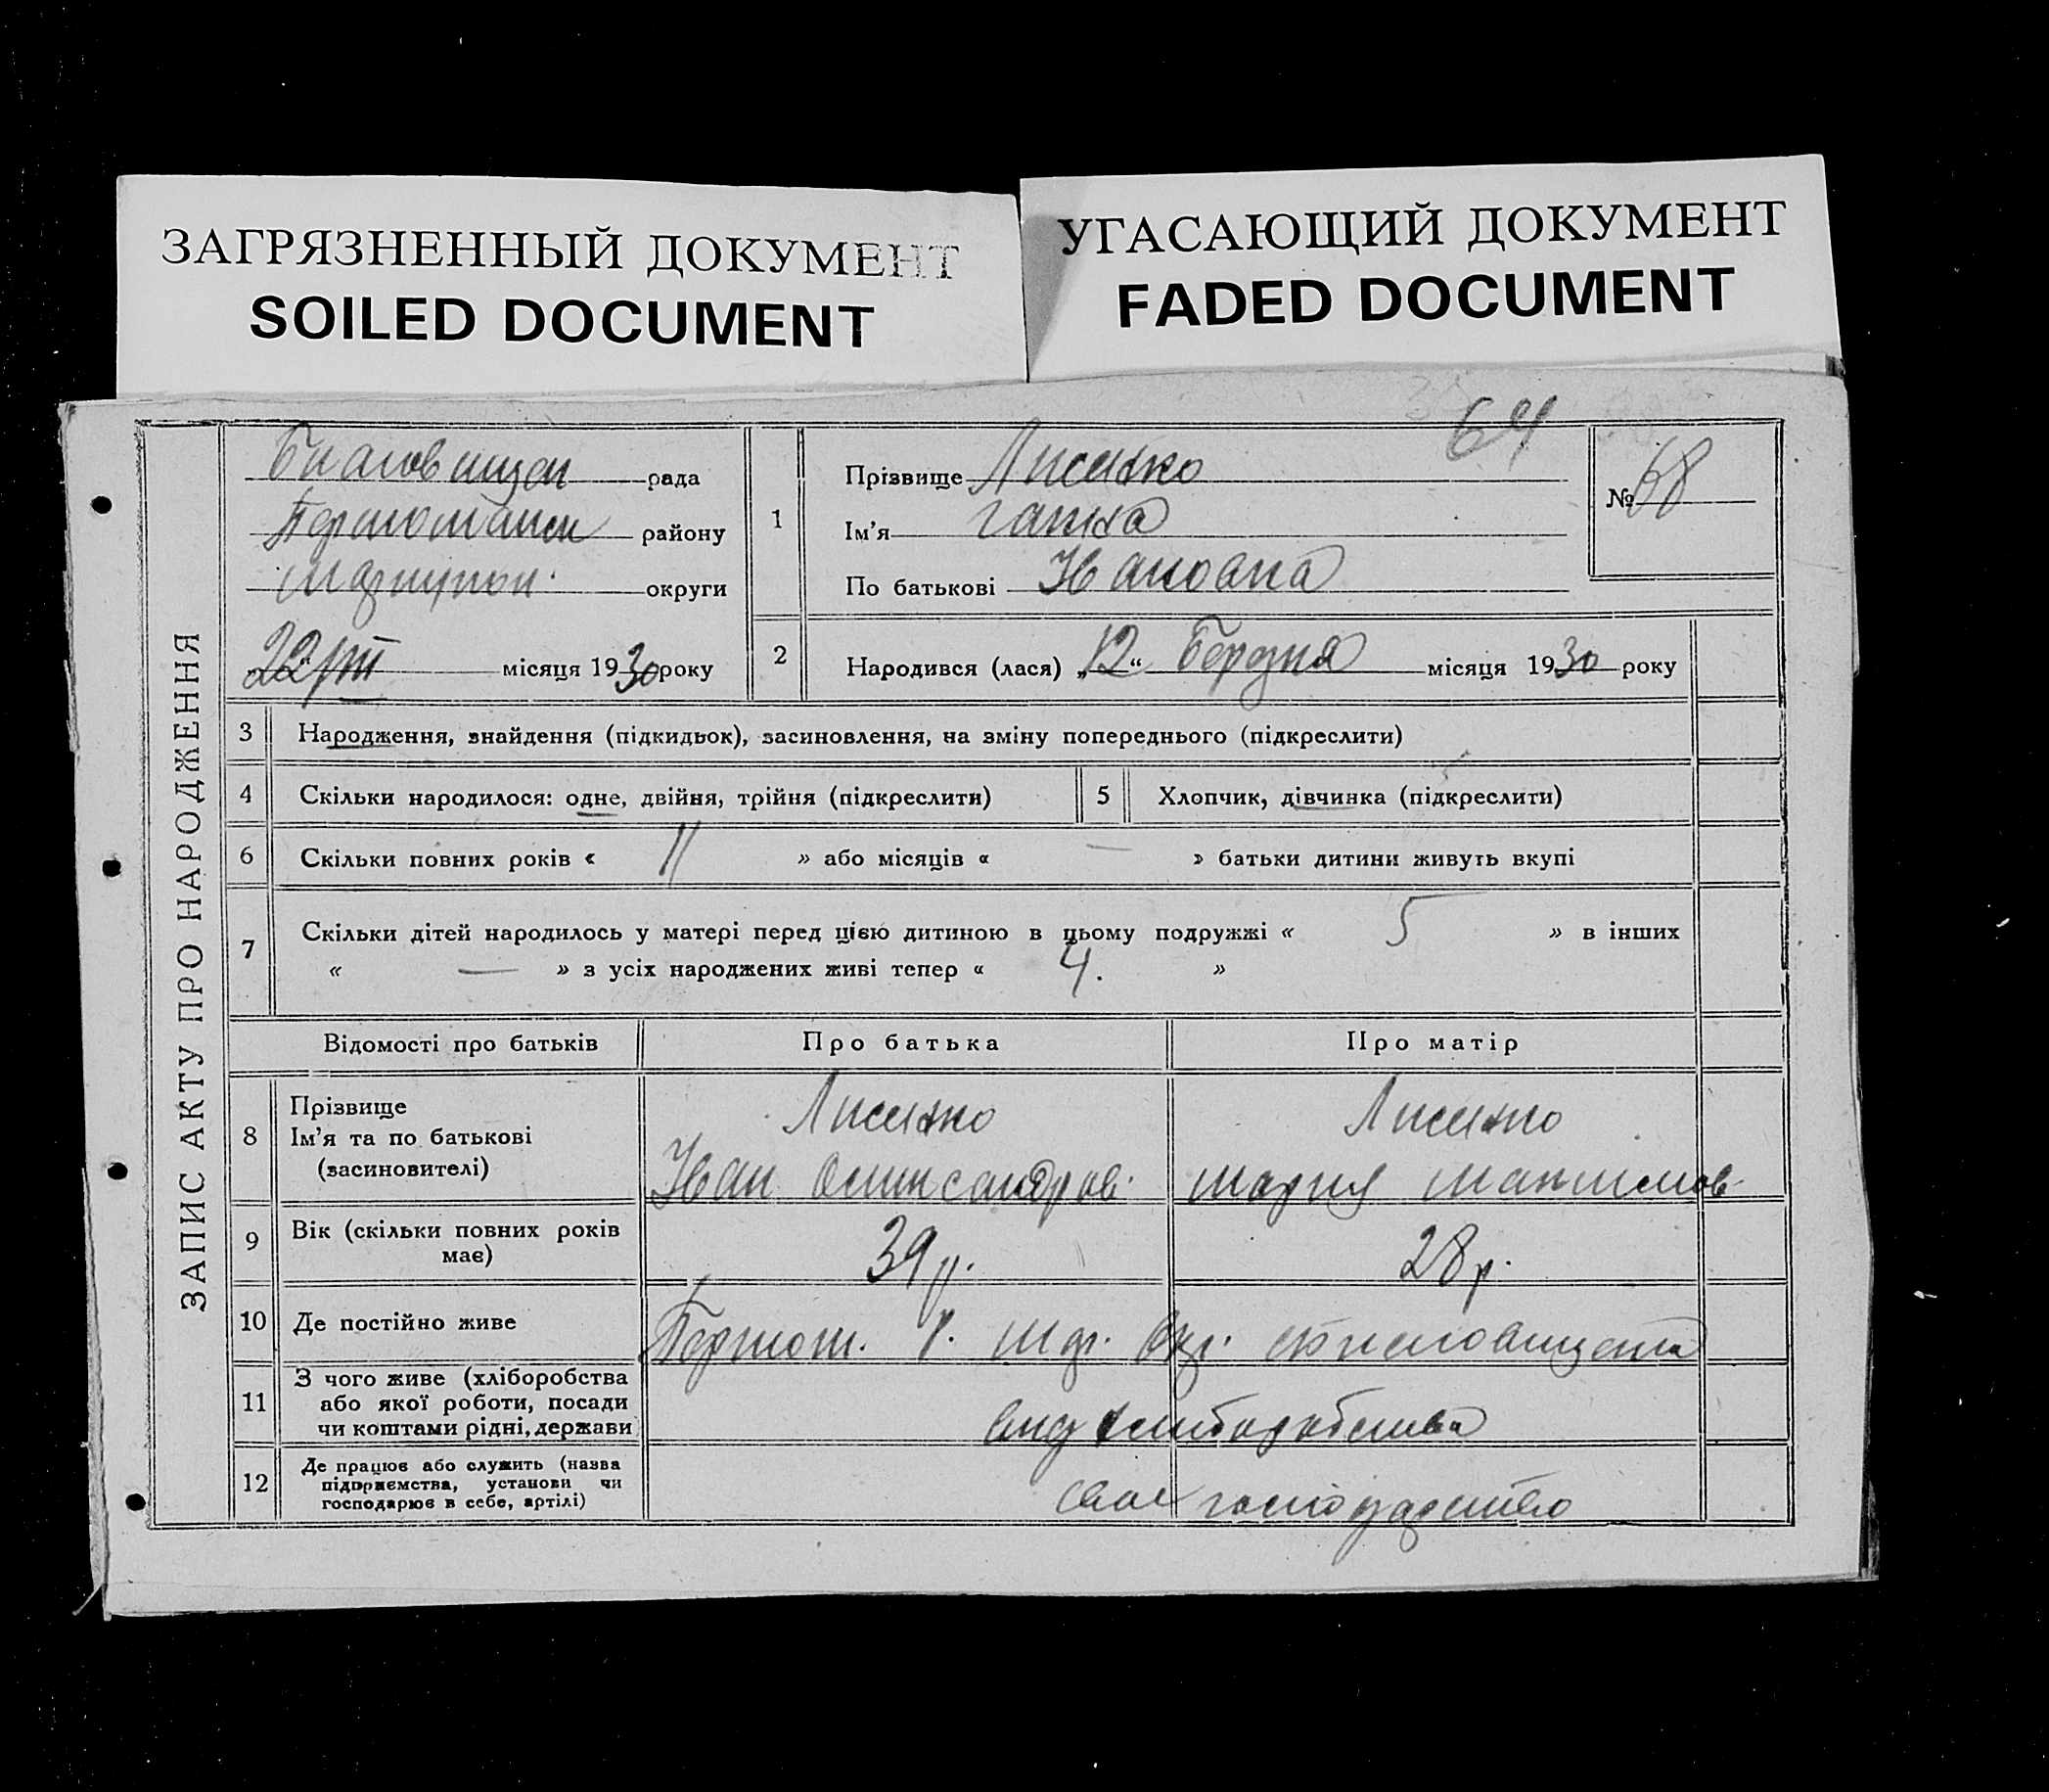 ЗАГРЯЗНЕННЫЙ ДОКУМЕНТ
SOILED DOCUMENT
УГАСАЮЩИЙ ДОКУМЕНТ
FADED DOCUMENT
64
ЗАПИС АКТУ ПРО НАРОДЖЕННЯ
рада
району
округи
22/III місяця 1930 року
1
Прізвище Лисенко
Ім'я Ганна
По батькові Ивановна
№ 68
2 Народився (лася) „12“ березня місяця 1930 року
3 Народження, знайдення (підкидьок), засиновлення, на зміну попереднього (підкреслити)
4 Скільки народилося: одне, двійня, трійня (підкреслити)
5 Хлопчик, дівчинка (підкреслити)
6 Скільки повних років « 11 » або місяців « — » батьки дитини живуть вкупі
7 Скільки дітей народилось у матері перед цією дитиною в цьому подружжі « 5 » в інших
« — » з усіх народжених живі тепер « 4. »
Відомості про батьків Про батька Про матір
8 Прізвище Лисенко Лисенко
Ім'я та по батькові
(засиновителі) Иван Олександров. Мария Максимов.
9 Вік (скільки повних років
має) 39 р. 28 р.
10 Де постійно живе р. окр.
11 З чого живе (хліборобства
або якої роботи, посади
чи коштами рідні, держави
від хлиборобства
12 Де працює або служить (назва
підприємства, установи чи
господарює в себе, артілі)
свое господарство